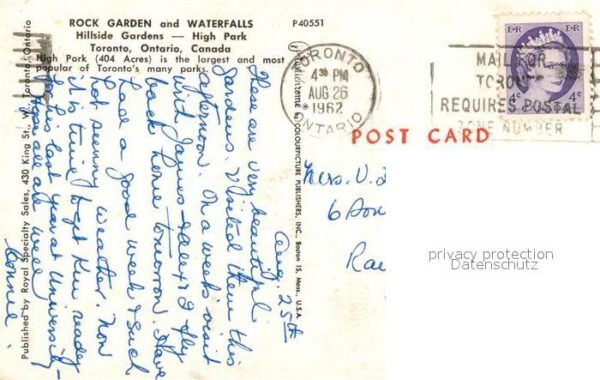 ROCK GARDEN and WATERFALLS
Hillside Gardens — High Park
Toronto, Ontario, Canada
High Park (404 Acres) is the largest and most
popular of Toronto's many parks.
P40551
Published by Royal Specialty Sales, 430 King St., W., Toronto, Ontario
COLOURPICTURE PUBLISHERS, INC., Boston 15, Mass., U.S.A.
Aug. 25th
These are very beautiful
gardens. Visited them this
afternoon. On a weeks visit
with James & I fly
back home tomorrow. Have
had a good week & such
hot sunny weather. Now
it is time to get Ken ready
for his last year at University
Hope all are well
Connie.
TORONTO
4 30 PM
AUG 26
1962
ONTARIO
MAIL FOR
TORONTO
REQUIRES POSTAL
ZONE NUMBER
E II R
E II R
4¢
4¢
POST CARD
Mrs. V.
6
privacy protection
Datenschutz